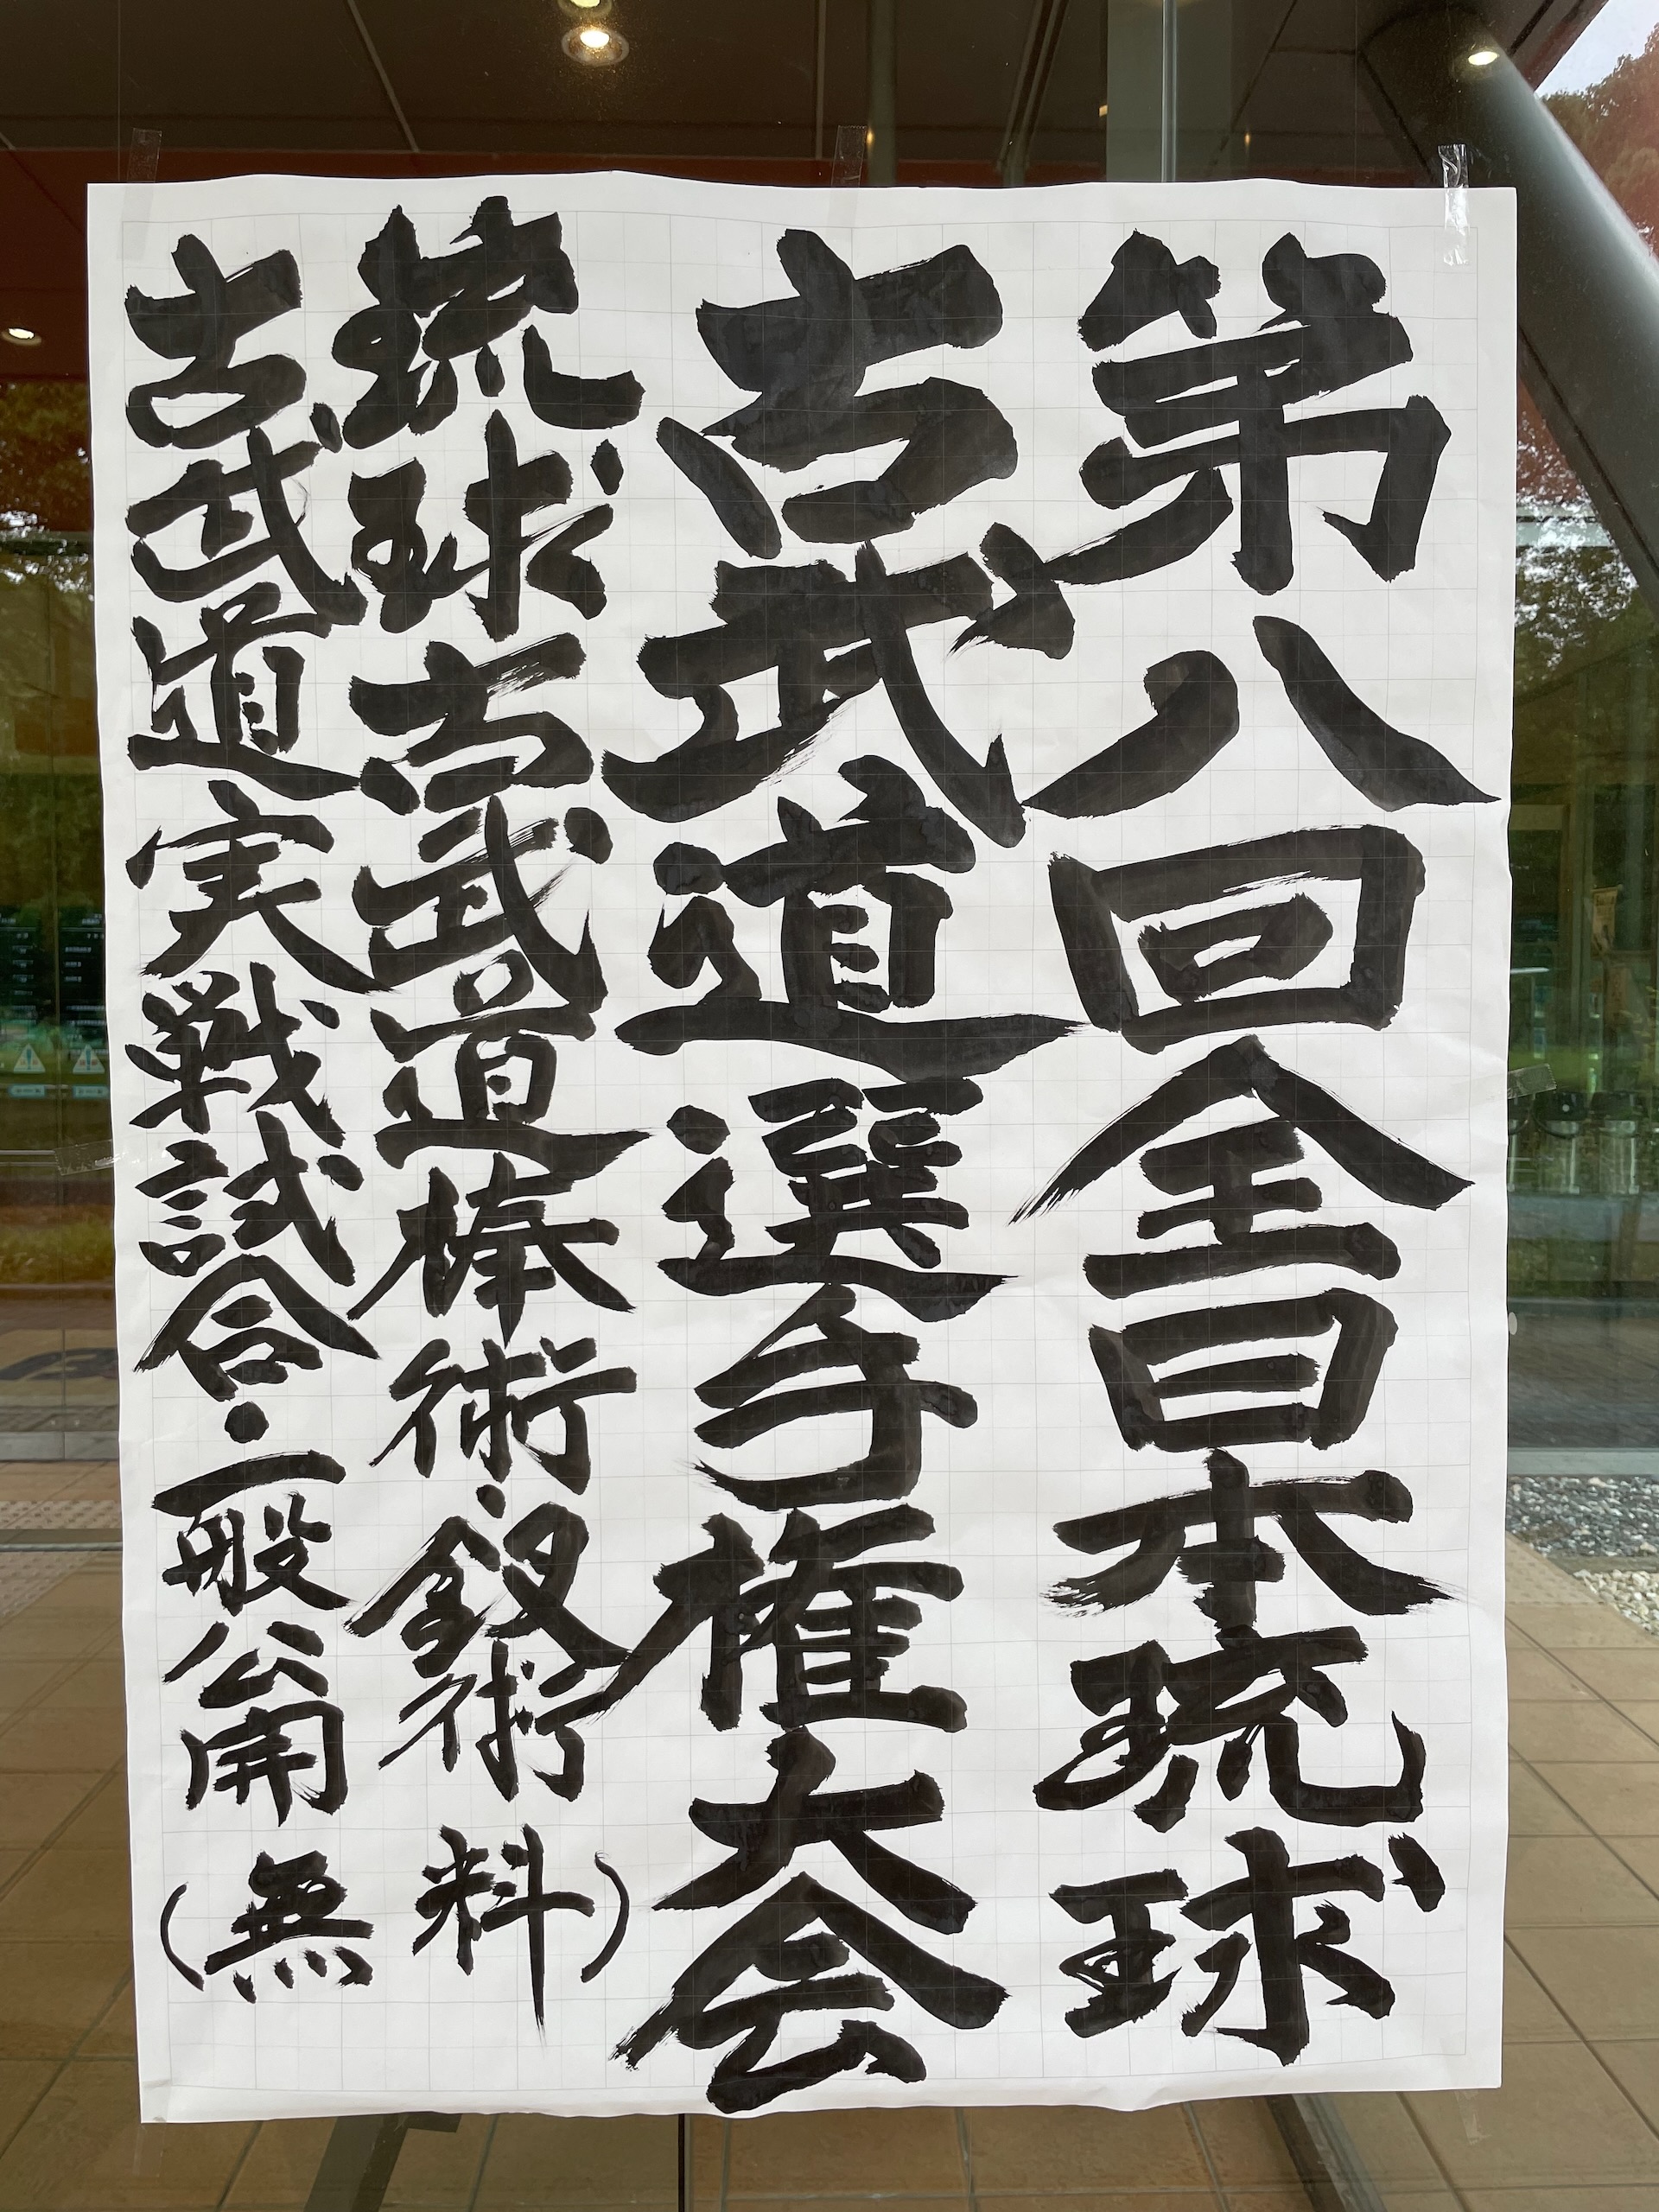 第八回全日本琉球
古武道選手権大会
琉球古武道棒術・釵術
古武道実戦試合・一般公開(無料)